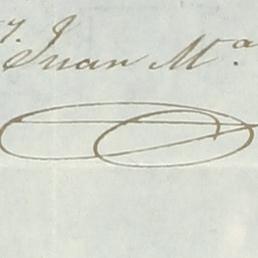 7. Juan M.ª